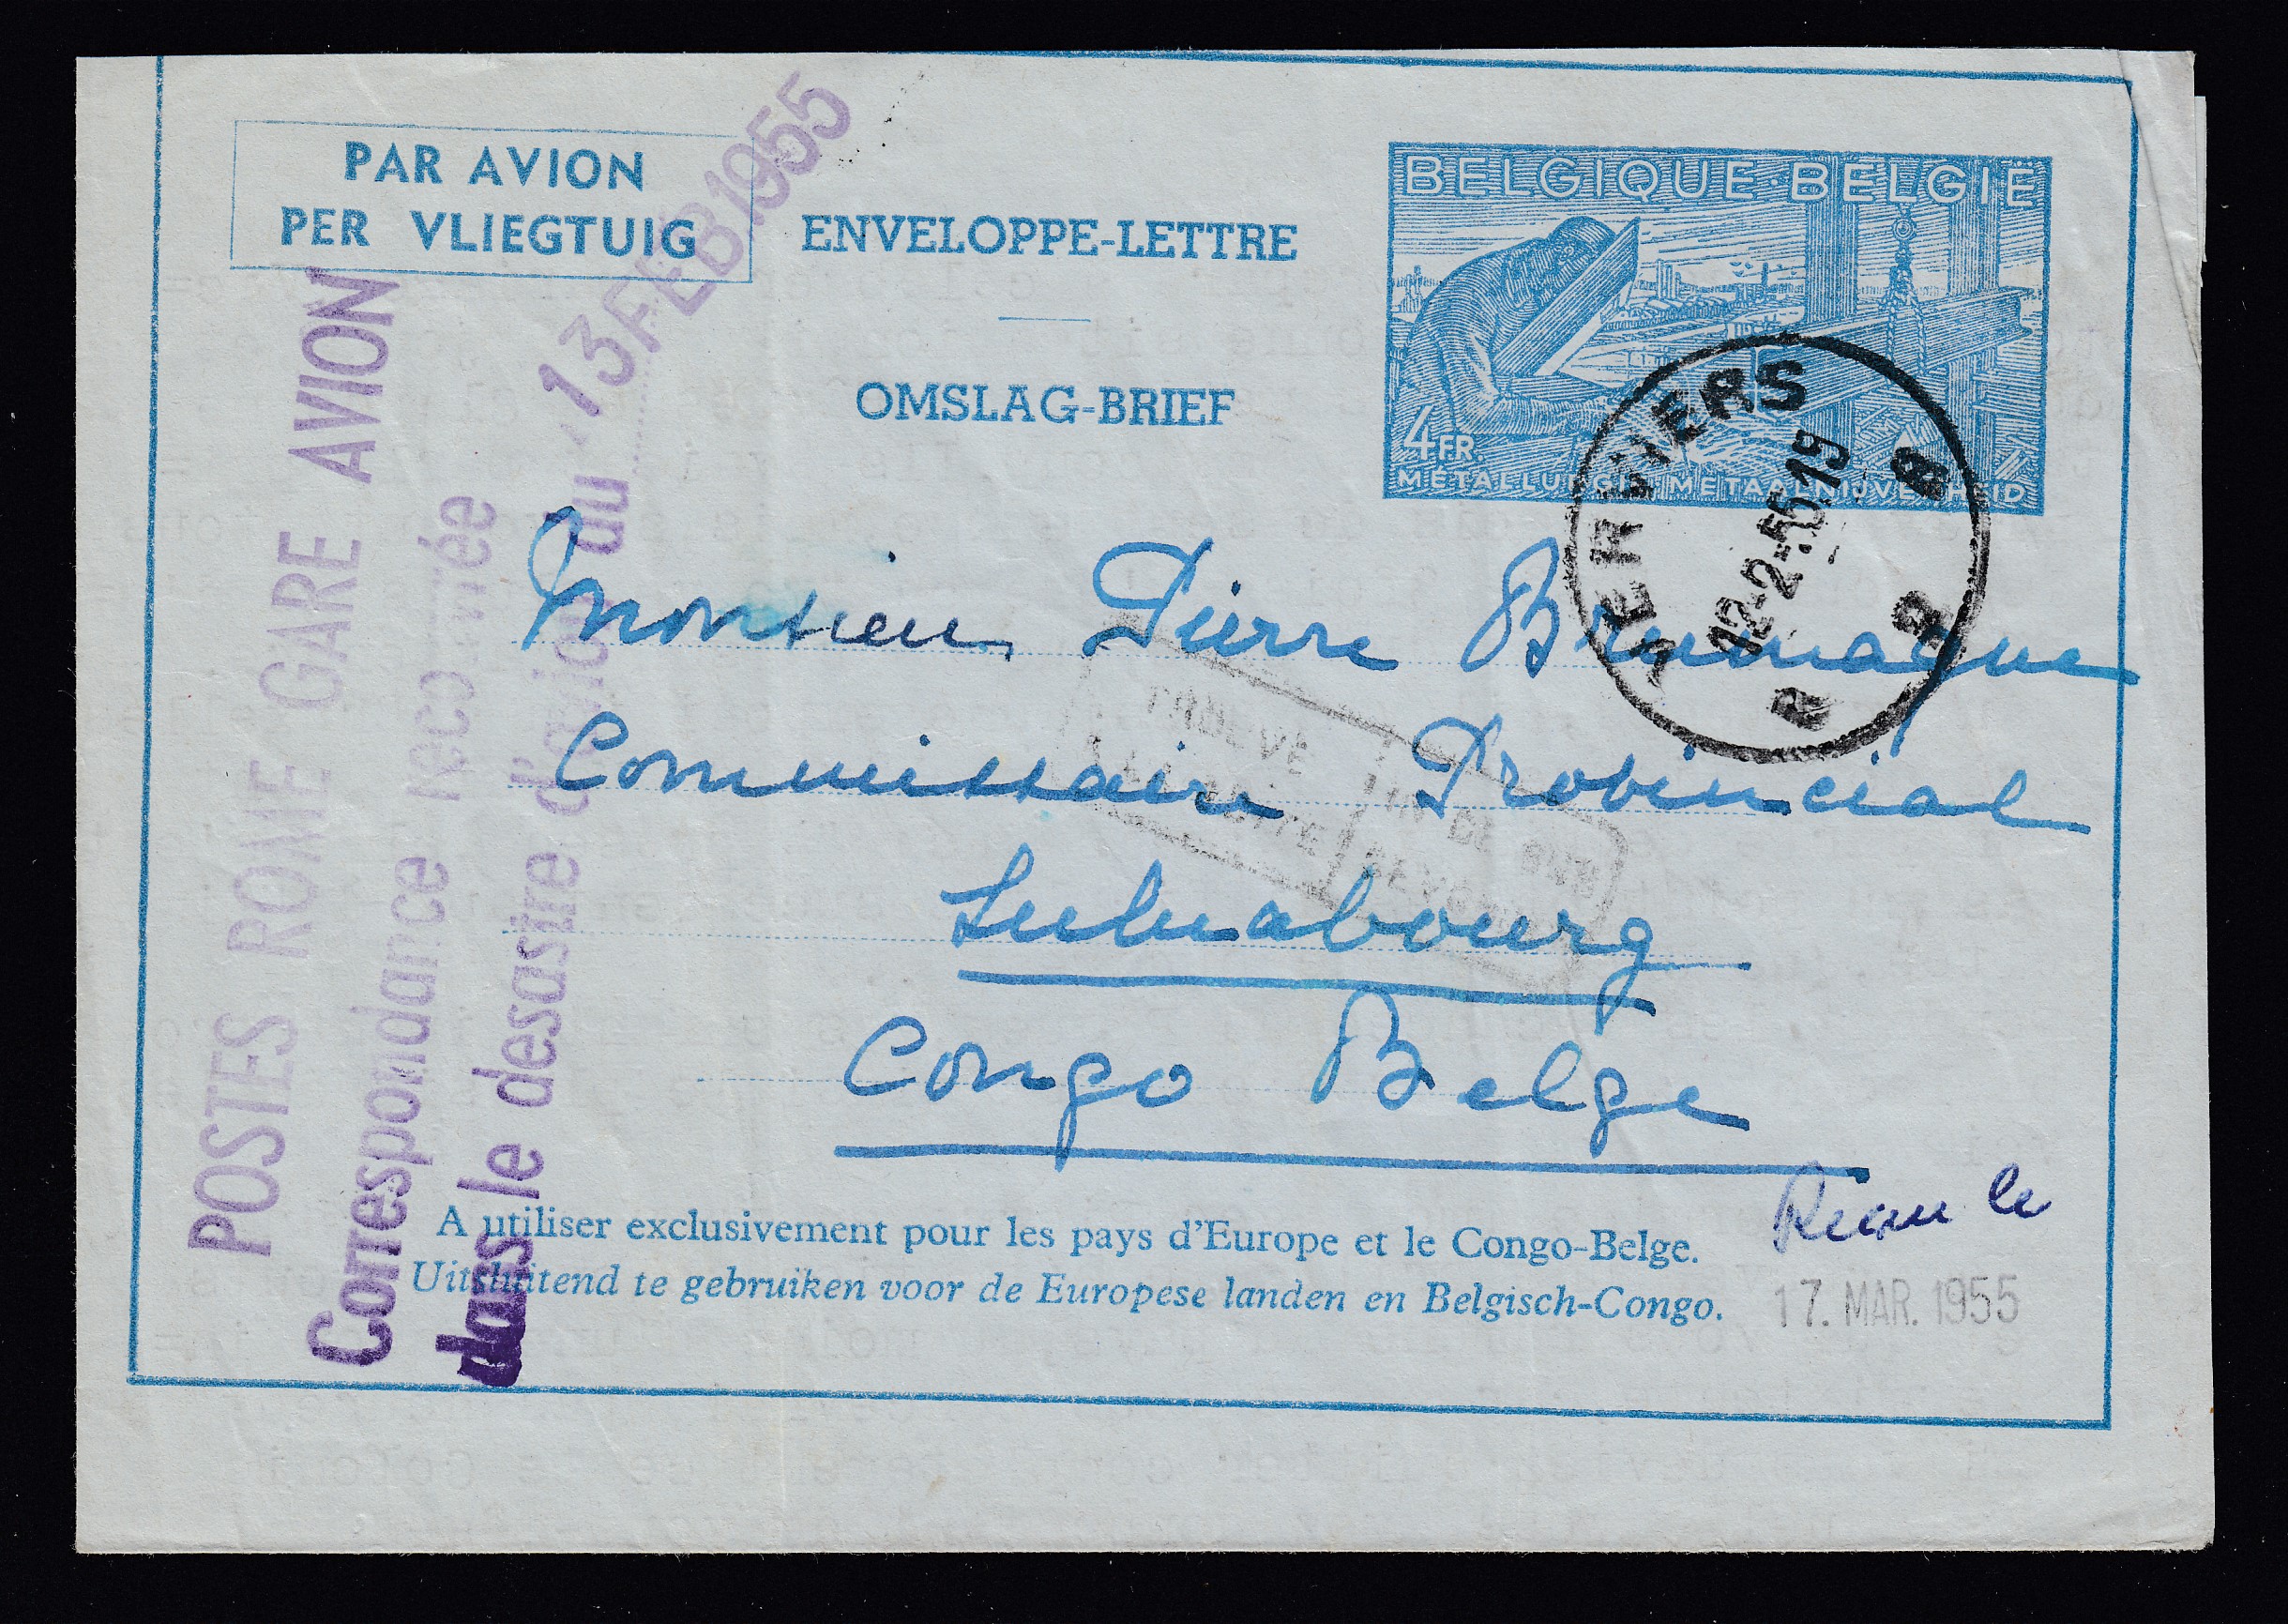 PAR AVION
PER VLIEGTUIG
ENVELOPPE-LETTRE
OMSLAG-BRIEF
BELGIQUE·BELGIË
4 FR
METALLURGIE METAALNIJVERHEID
VERVIERS
12-2-55 19
POSTES ROME GARE AVION
Correspondance recouvrée
dans le desastre d'avion du 13 FEB 1955
Monsieur Pierre Brumagne
Commissaire Provincial
Luluabourg
Congo Belge
A utiliser exclusivement pour les pays d'Europe et le Congo-Belge.
Uitsluitend te gebruiken voor de Europese landen en Belgisch-Congo.
le
17. MAR. 1955